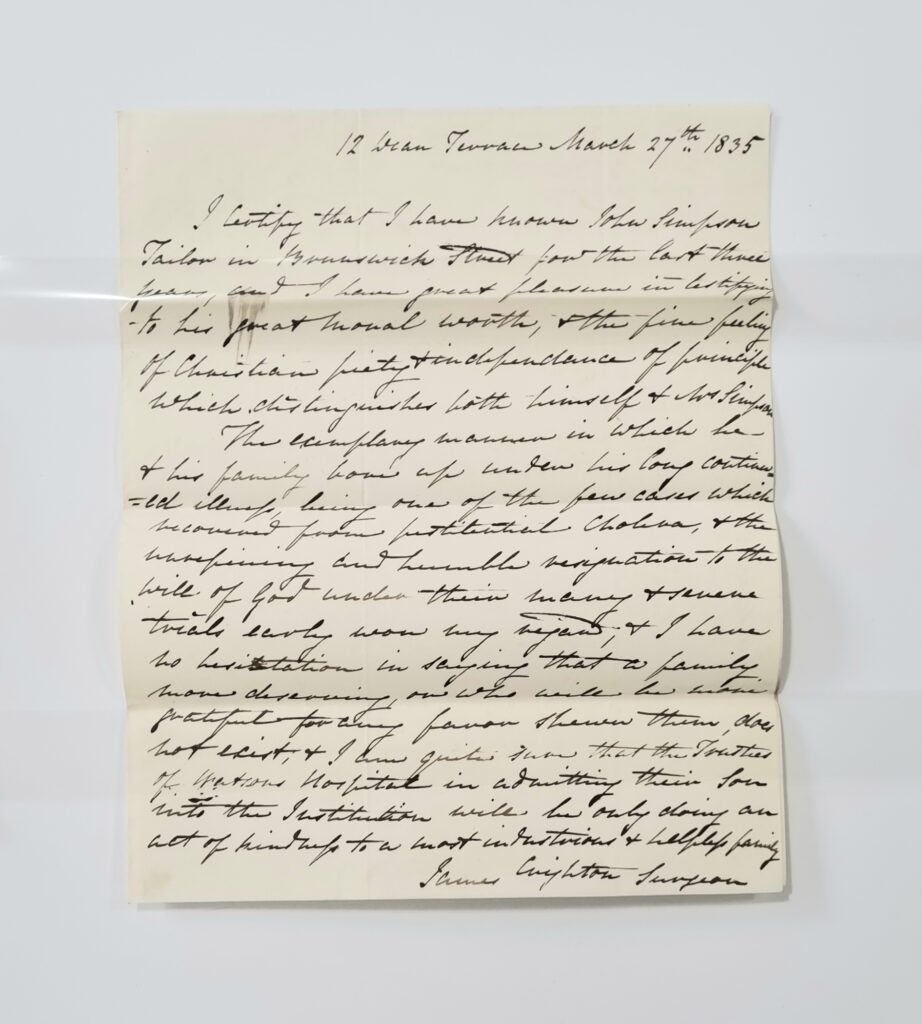 12 Dean Terrace March 27th 1835
I certify that I have known John Simpson
Tailor in Brunswick Street for the last three
years, and I have great pleasure in testifying
to his great moral worth, & the fine feeling
of Christian piety & independance of principle
which distinguishes both himself & Mrs Simpson
The exemplary manner in which he
& his family bore up under his long continu=
=ed illness, being one of the few cases which
recovered from pestilential Cholera, & the
unrepining and humble resignation to the
will of God under their many & severe
trials early won my regard, & I have
no hesitation in saying that a family
more deserving, or who will be more
grateful for any favor shewn them, does
not exist, & I am quite sure that the Trustees
of Watsons Hospital in admitting their Son
into the Institution will be only doing an
act of kindness to a most industrious & helpless family
James Crighton Surgeon